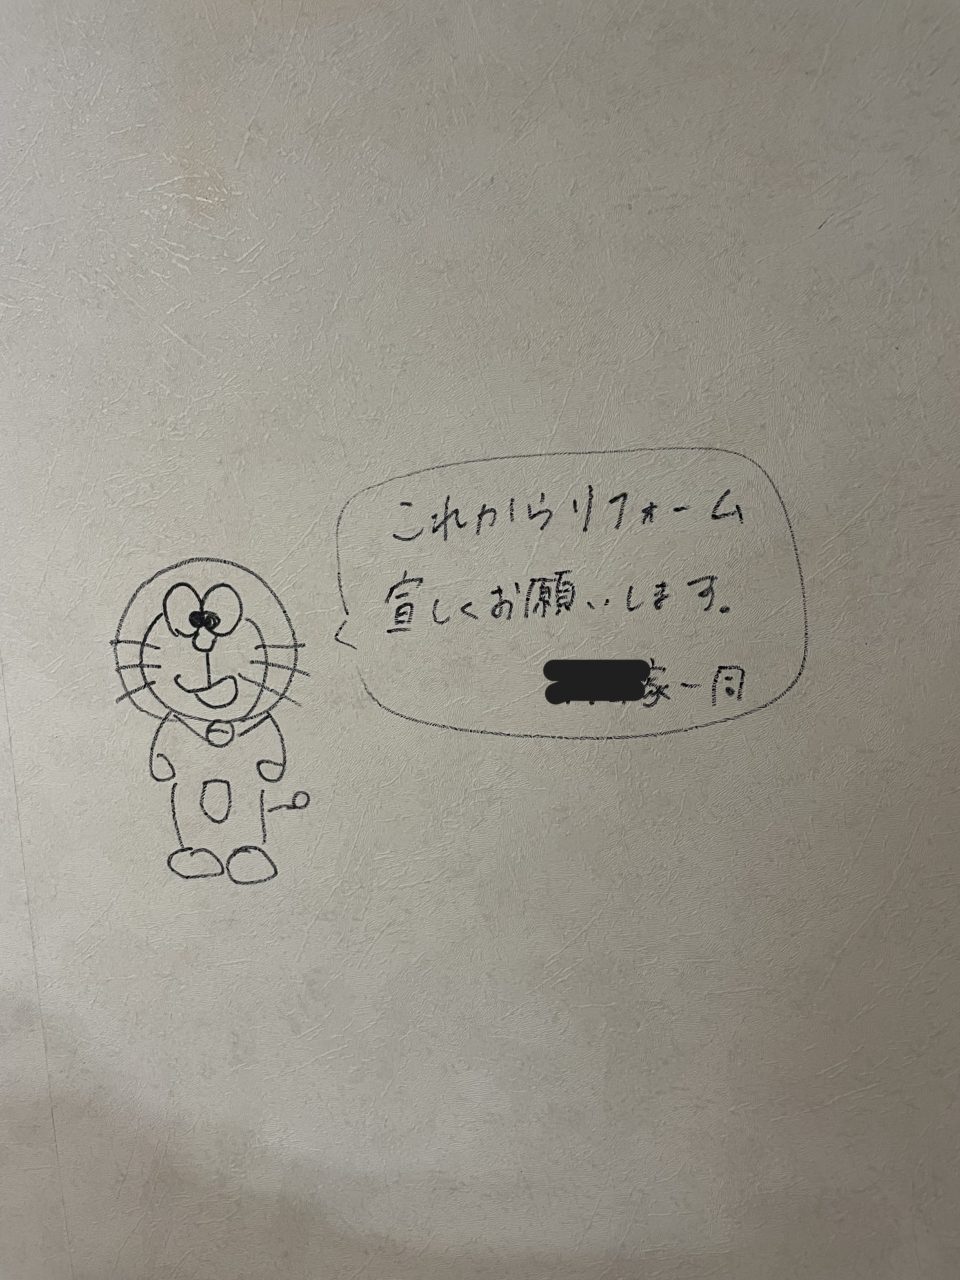 これからリフォーム
宜しくお願いします。
家一同